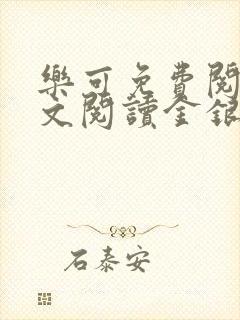 樂可免費閱
文閱讀金銀
石泰安